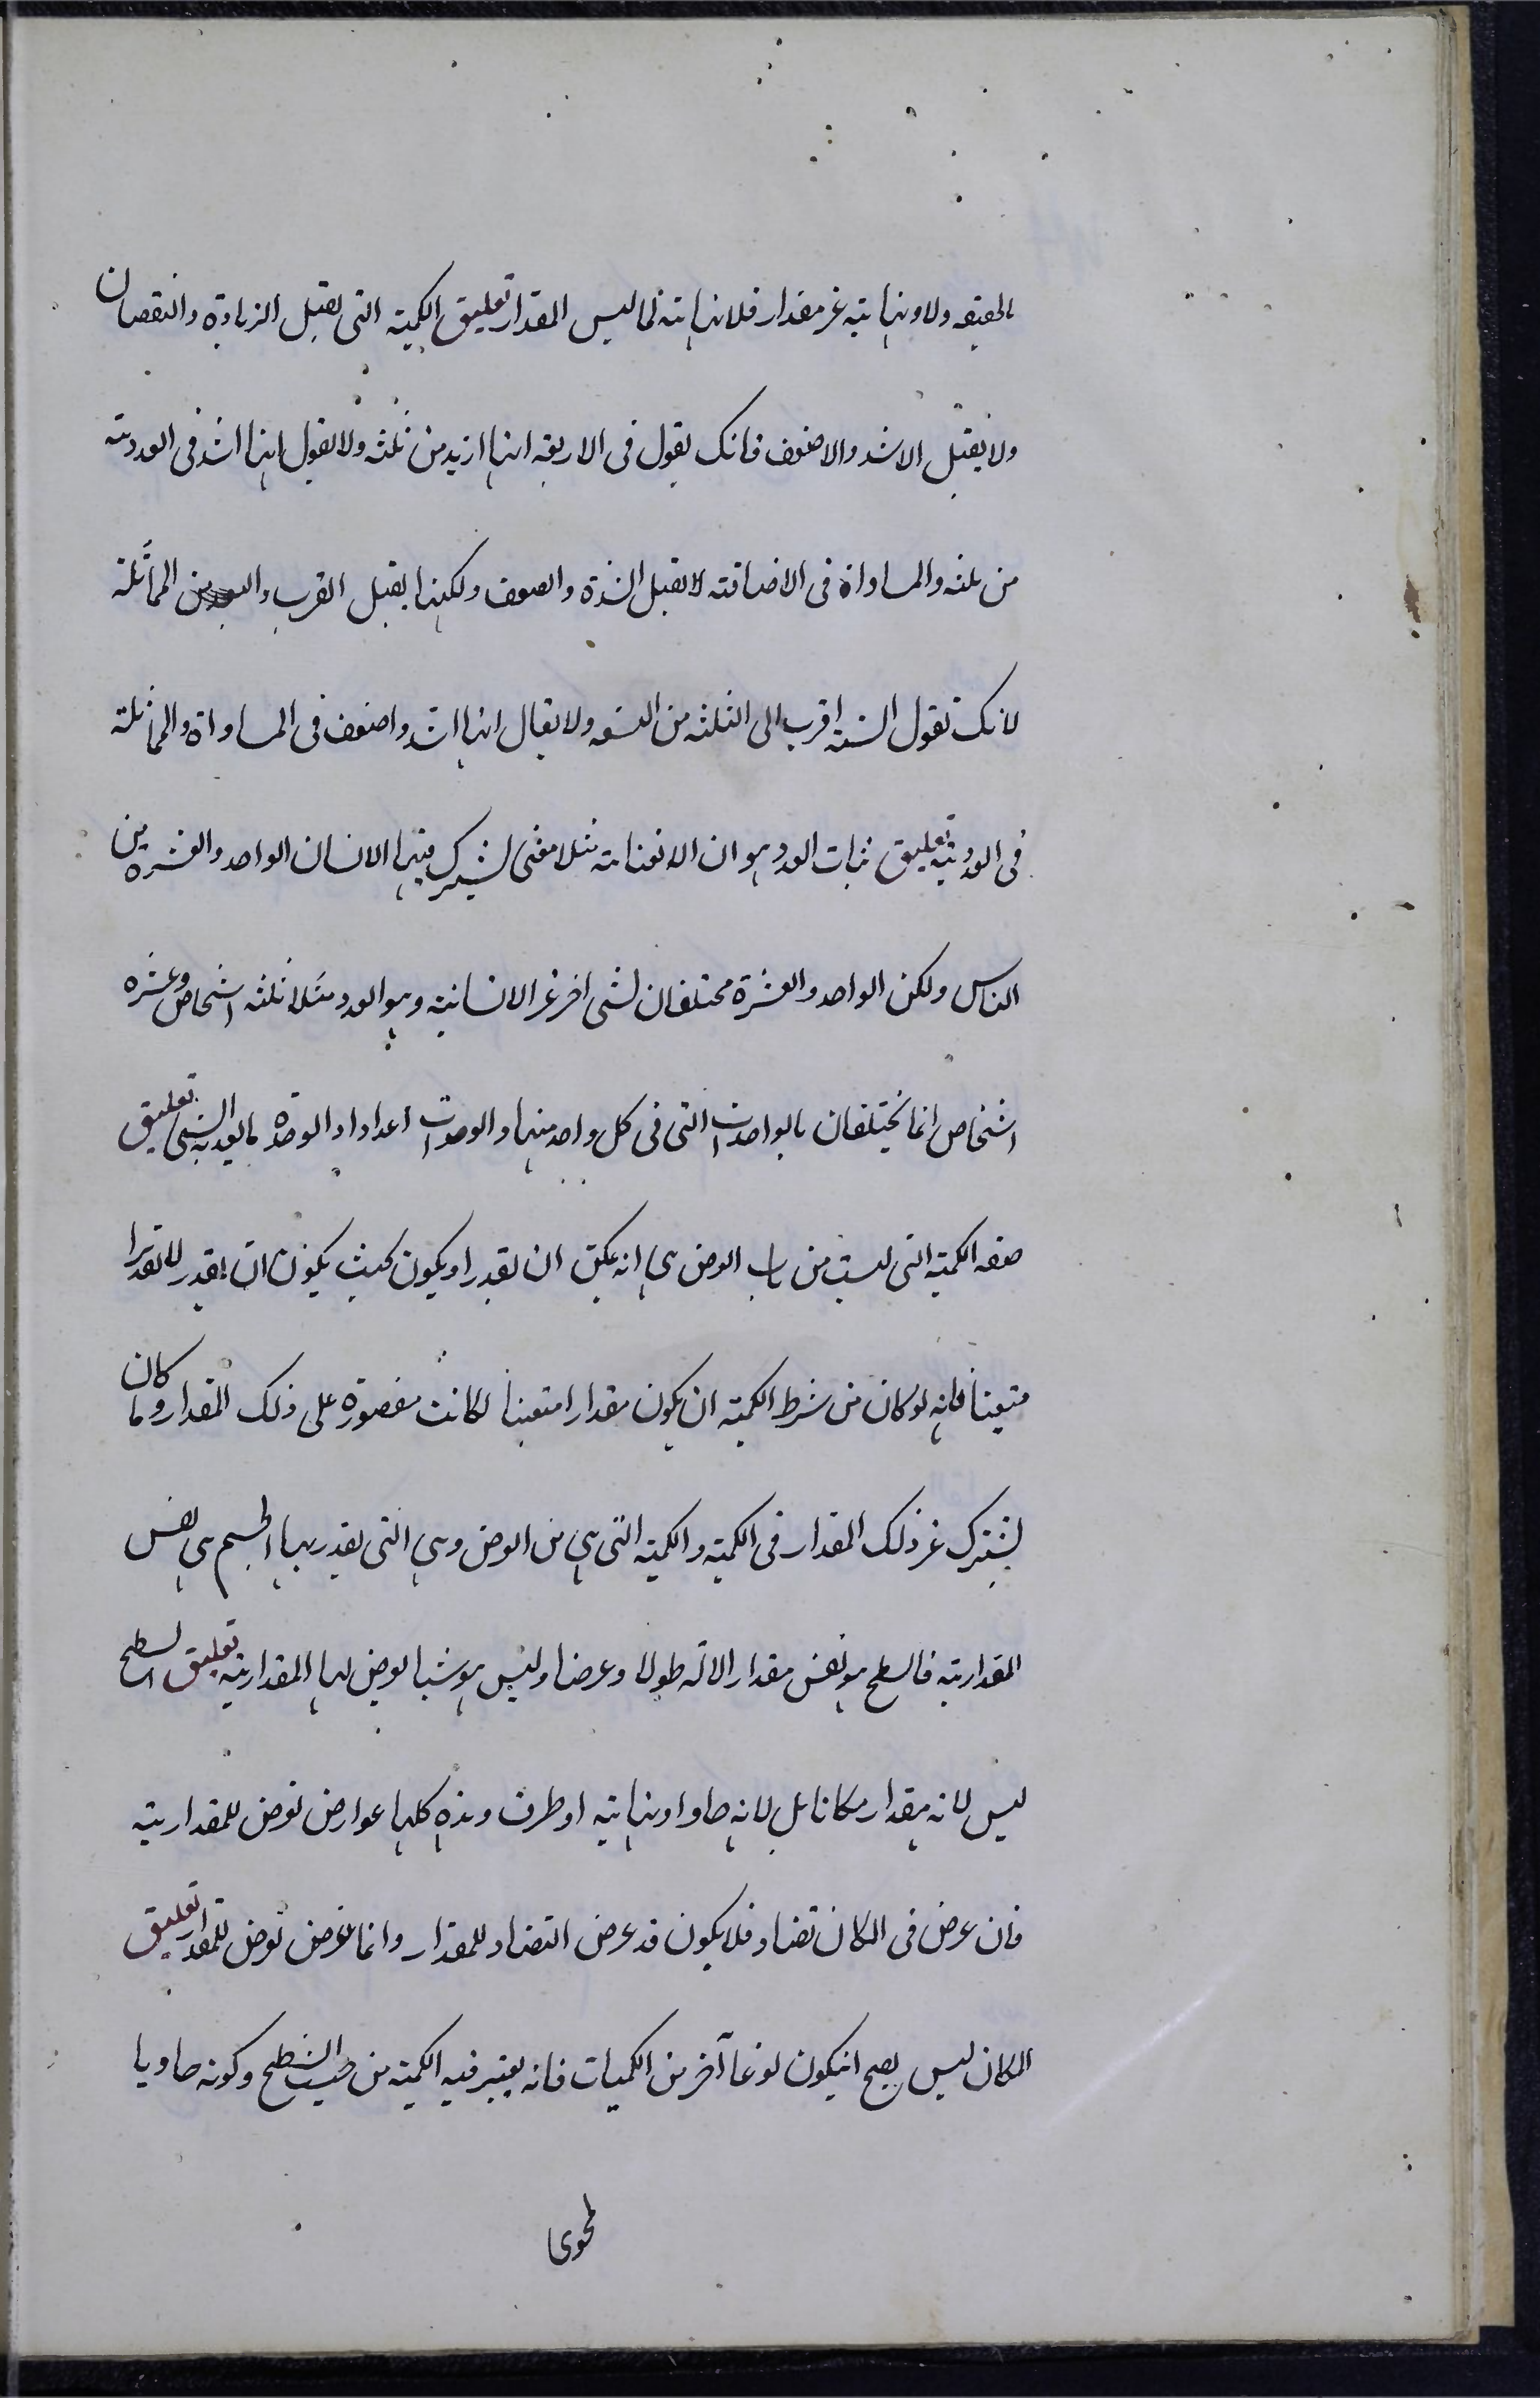 بالحقيقه ولا ونهايته غير مقدار فلا نهايته لما ليس المقدار تعليق الكمية التى يقبل الزيادة والنقصان
ولا يقبل الاشد والاضعف فانك يقول فى الاربعه انها ازيد من ثلثه ولا يقول انها اشد فى العددية
من ثلثه والمساواة فى الاضافة لا تقبل الشدة والضعف ولكنها يقبل القرب والبعد من المماثلة
لانك تقول الستة اقرب الى الثلثه من التسعه ولا يقال انها اشد واضعف فى المساواة والمماثلة
فى العددية تعليق ثبات العدد هو ان الانسانيه مثلا معنى يشترك فيها الانسان الواحد والعشرة من
الناس ولكن الواحد والعشرة مختلفان لشئ اخر غير الانسانية وهو العدد مثلا ثلثه اشخاص وعشره
اشخاص انما يختلفان بالواحدات التى فى كل واحد منها والوحدات اعداد اذ الوحدة ما يعد به الشئ تعليق
صفه الكمية التى ليست من باب العرض هى انه يمكن ان يقدر او يكون بحيث يكون ان يقدر لا تقديرا
متعينا فانه لو كان من شرط الكمية ان يكون مقدارا متعينا لكانت مقصورة على ذلك المقدار وما كان
يشترك غير ذلك المقدار فى الكمية والكمية التى هى من العرض وهى التى يقدر بها الجسم هى نفس
المقدارية فالسطح هو نفس مقدار الا انه طولا وعرضا وليس هو شيئا يعرض لها المقدارية تعليق السطح
ليس لانه مقدار مكانا بل لانه حاو او نهاية او طرف وهذه كلها عوارض تعرض للمقدارية
فان عرض فى المكان تضاد فلا يكون قد عرض التضاد للمقدار وانما عرض لعرض للمقدار تعليق
المكان ليس يصح انيكون نوعا آخر من الكميات فانه يعتبر فيه الكمية من حيث السطح وكونه حاويا
لمحوى